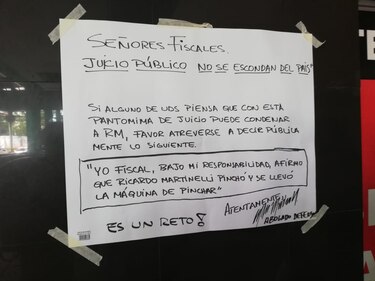 SEÑORES FISCALES.
JUICIO PÚBLICO NO SE ESCONDAN DEL PAÍS"
SI ALGUNO DE UDS PIENSA QUE CON ESTÁ
PANTOMIMA DE JUICIO PUEDE CONDENAR
A RM, FAVOR ATREVERSE A DECIR PÚBLICA
MENTE LO SIGUIENTE.
"YO FISCAL, BAJO MI RESPONSABILIDAD, AFIRMO
QUE RICARDO MARTINELLI PINCHÓ Y SE LLEVÓ
LA MÁQUINA DE PINCHAR"
ATENTAMENTE
ES UN RETO!
ABOGADO DEFENSA